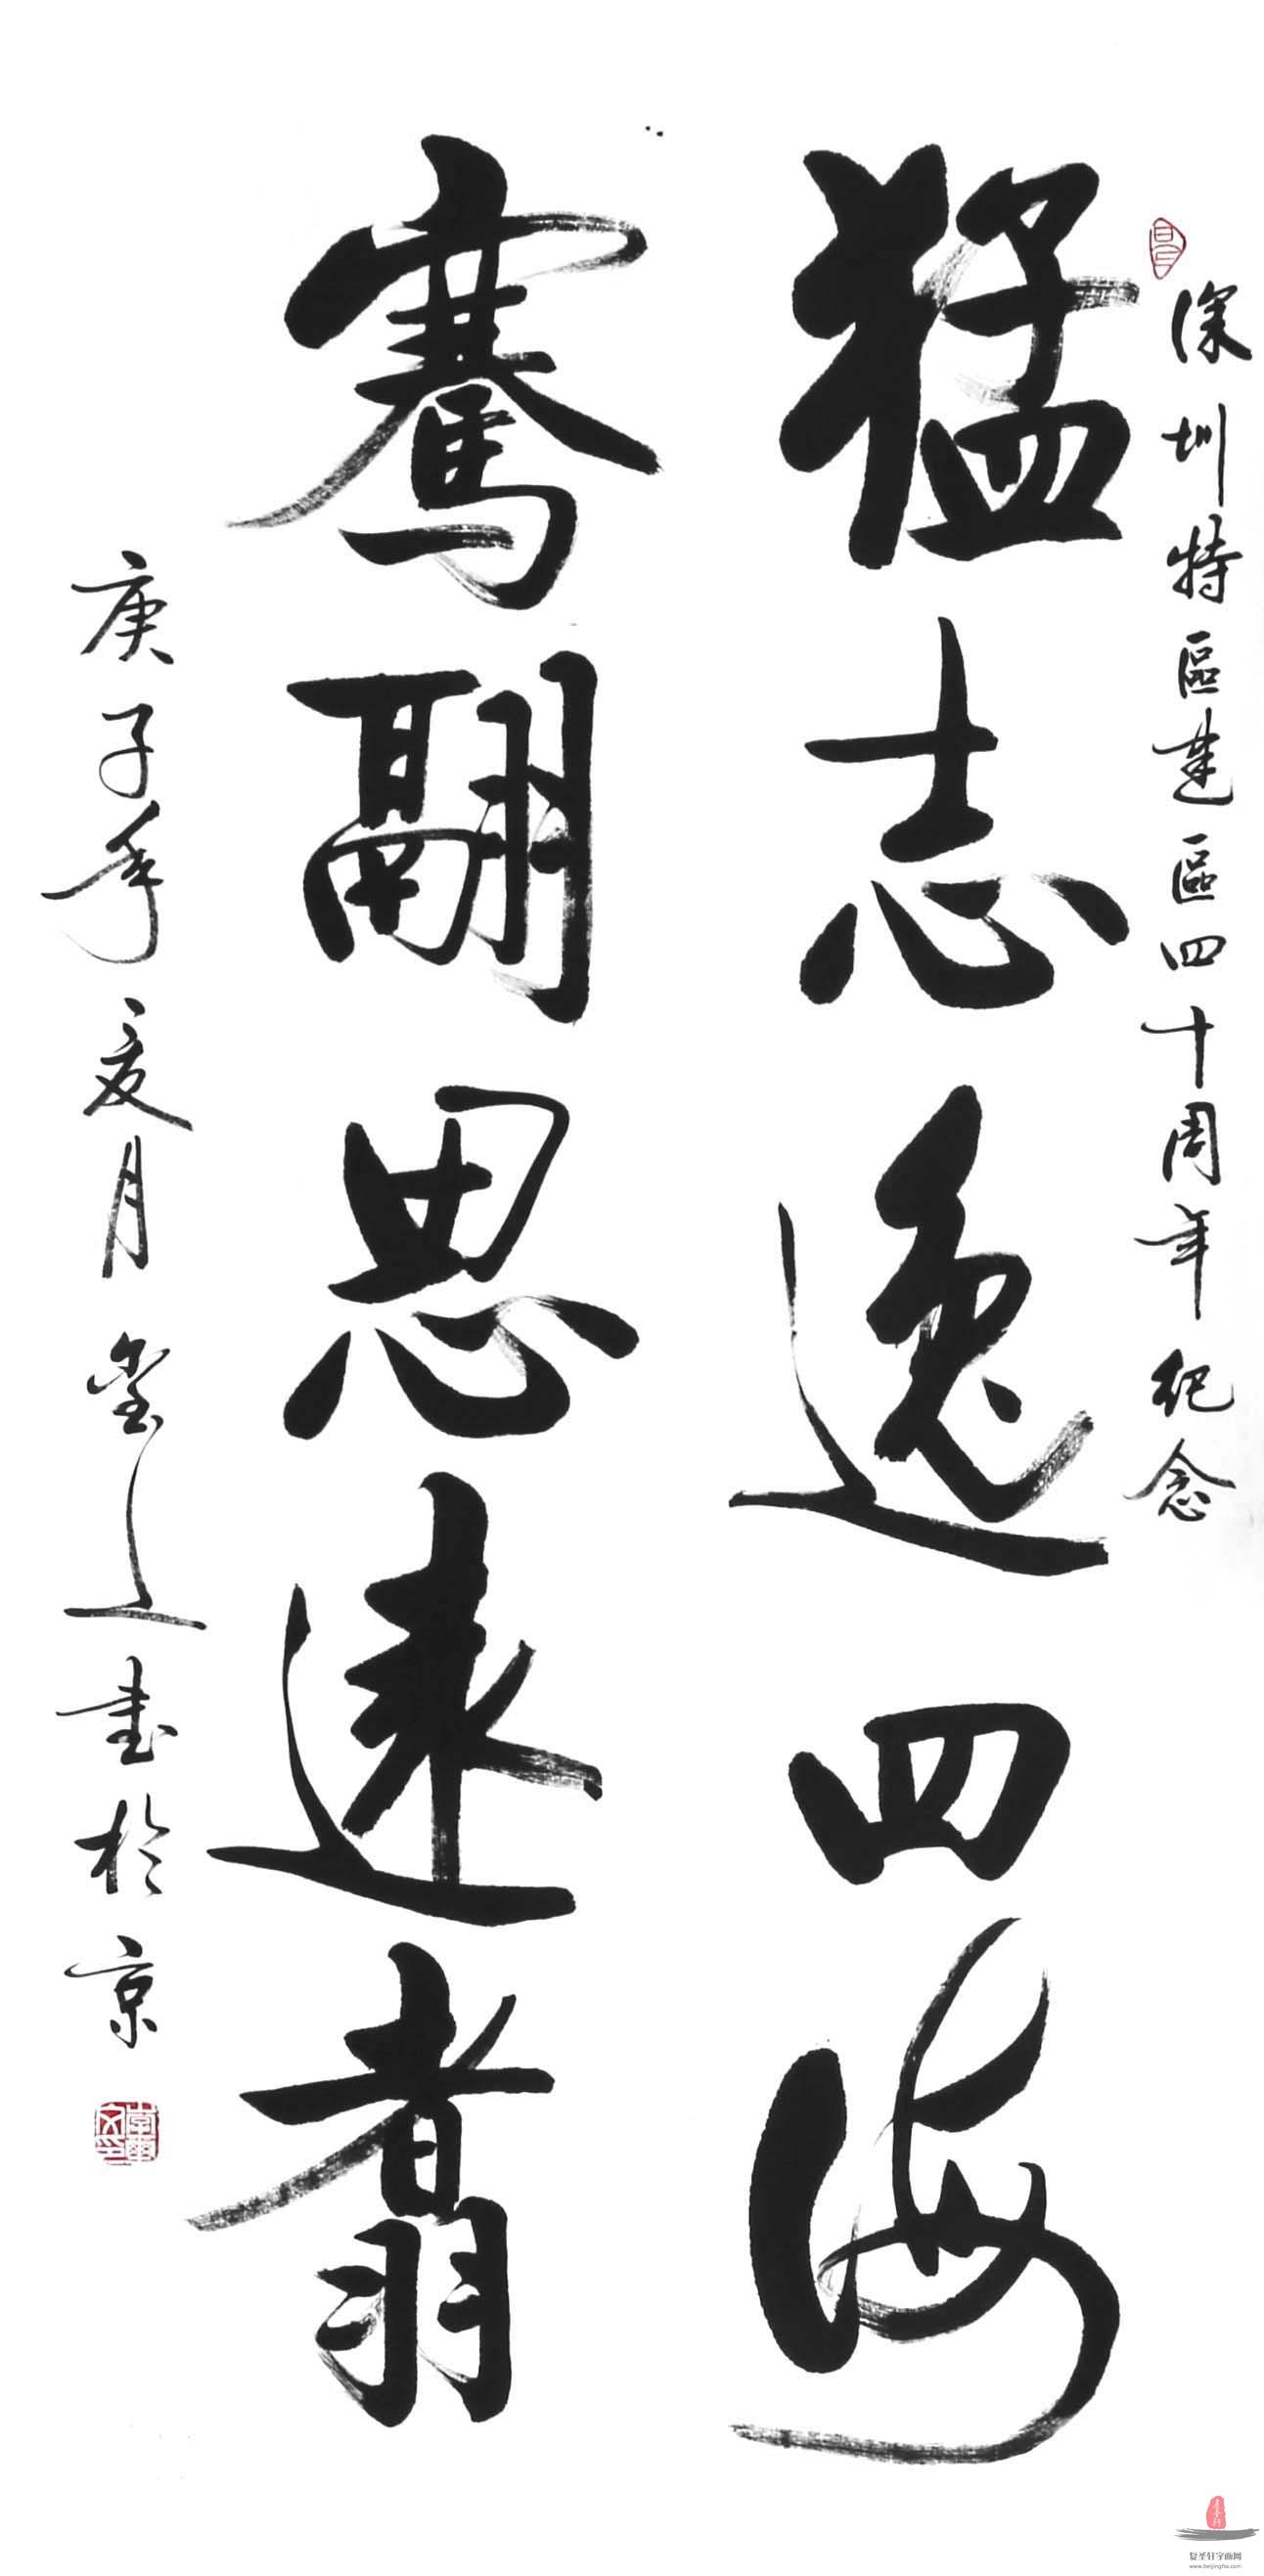 深圳特區建區四十周年紀念
猛志逸四海
騫翮思遠翥
庚子年夏月
書於京
复圣轩字画网
www.beijingfsx.com